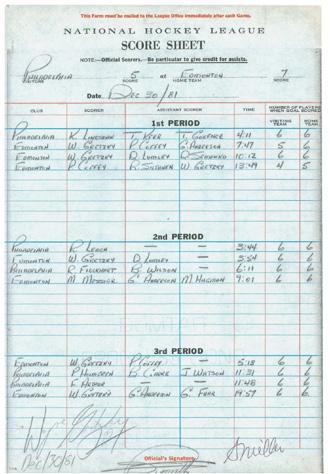 This Form must be mailed to the League Office immediately after each Game.
NATIONAL HOCKEY LEAGUE
SCORE SHEET
NOTE:—Official Scorers.—Be particular to give credit for assists.
PHILADELPHIA 5 at EDMONTON 7
VISITORS SCORE HOME TEAM SCORE
Date DEC 30/81
NUMBER OF PLAYERS WHEN GOAL SCORED
CLUB SCORER ASSISTANT SCORER TIME VISITING TEAM HOME TEAM
1st PERIOD
PHILADELPHIA K. LINSEMAN T. KERR 4:11 6 6
EDMONTON W. GRETZKY P. COFFEY G. ANDERSON 7:47 5 6
EDMONTON W. GRETZKY D. LUMLEY D. SEMENKO 10:12 6 6
EDMONTON P. COFFEY R. SILTANEN W. GRETZKY 13:49 4 5
2nd PERIOD
PHILADELPHIA R. LEACH — — 3:44 6 6
EDMONTON W. GRETZKY D. LUMLEY — 5:54 6 6
PHILADELPHIA B. WILSON — 6:11 6 6
EDMONTON M. MESSIER G. ANDERSON M. HAGMAN 9:01 6 6
3rd PERIOD
EDMONTON W. GRETZKY P. COFFEY — 5:18 6 6
PHILADELPHIA P. HOLMGREN B. CLARKE J. WATSON 11:31 6 6
PHILADELPHIA — — 11:48 6 6
EDMONTON W. GRETZKY G. ANDERSON G. FUHR 19:57 6 6
DEC/30/81
Official's Signature